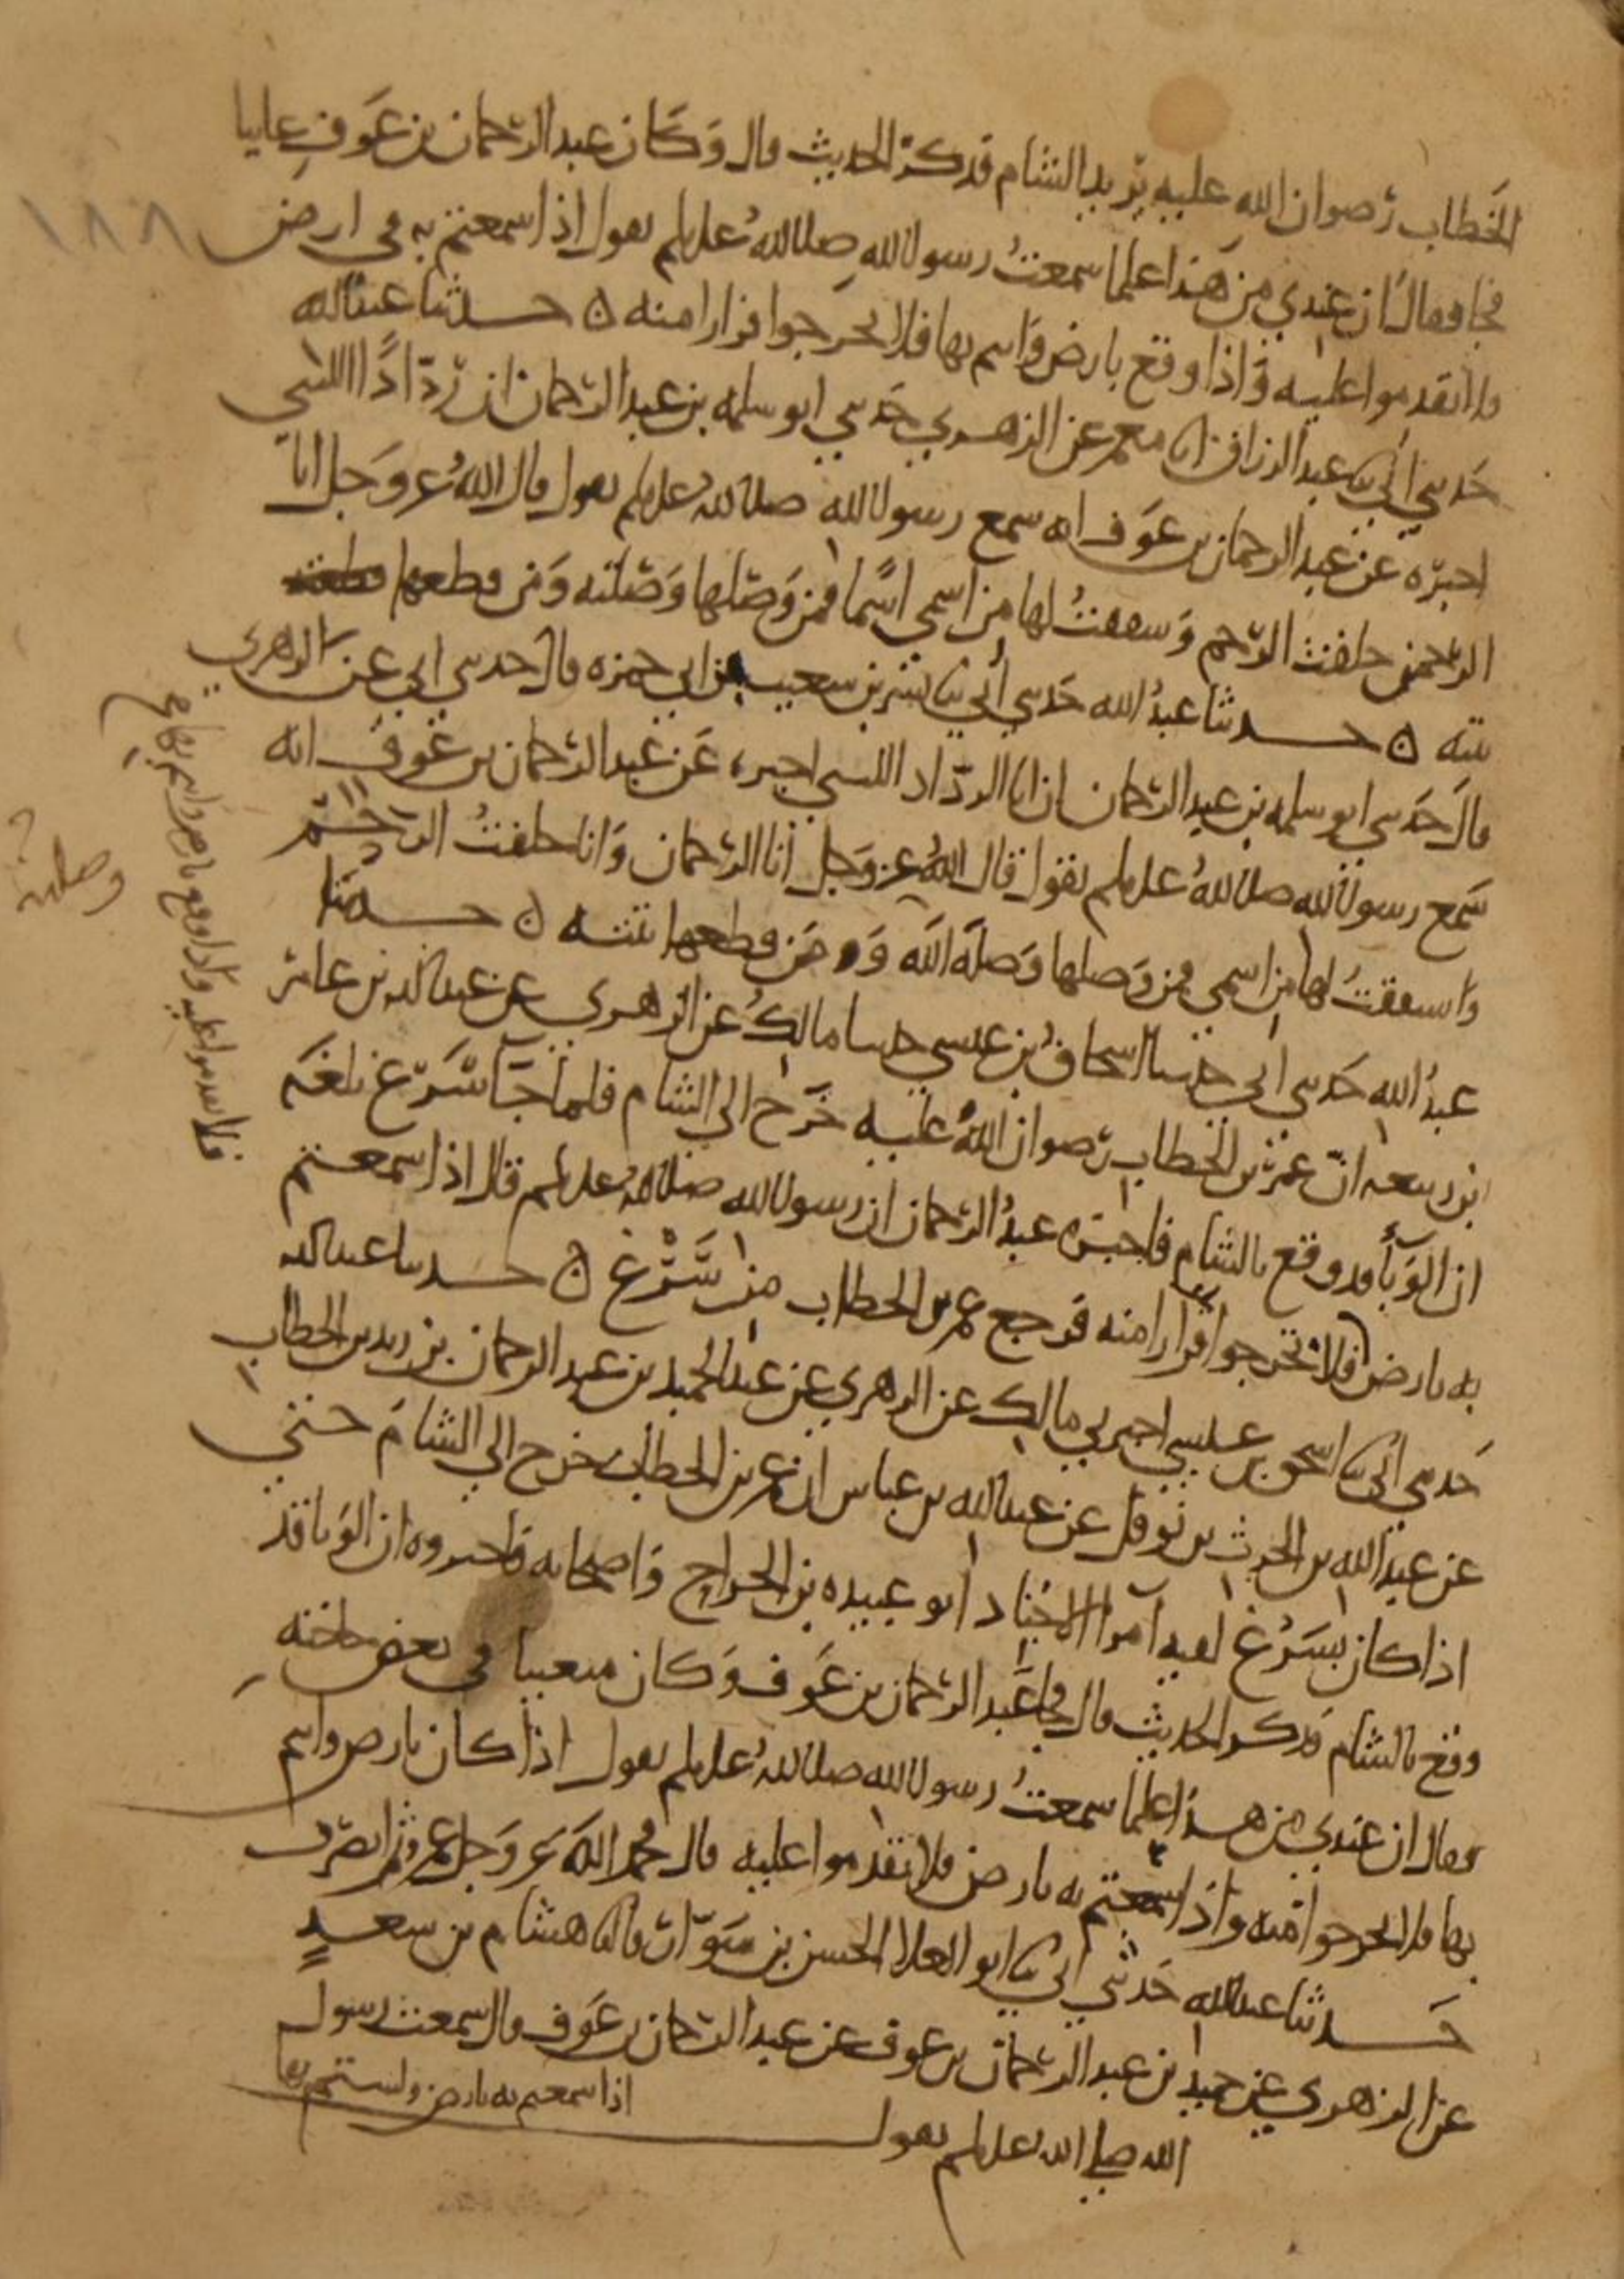 الخطاب رضوان الله عليه يريد الشام فذكر الحديث قال وكان عبد الرحمان بن عوف غايبا
فجا فقال ان عندي من هذا علما سمعت رسول الله صلى الله عليه وسلم يقول اذا سمعتم به في ارض
فلا تقدموا عليه واذا وقع بارض وانتم بها فلا تخرجوا فرارا منه ه حدثنا عبد الله
حدثني ابي ثنا عبد الرزاق انا معمر عن الزهري حدثني ابو سلمه بن عبد الرحمان ان ردادا الليثي
اخبره عن عبد الرحمان بن عوف انه سمع رسول الله صلى الله عليه وسلم يقول قال الله عز وجل انا
الرحمن خلقت الرحم وشققت لها من اسمي اسما فمن وصلها وصلته ومن قطعها
بتته ه حدثنا عبد الله حدثني ابي ثنا بشر بن شعيب بن ابي حمزه قال حدثني ابي عن الزهري
قال حدثني ابو سلمه بن عبد الرحمان ان ابا الرداد الليثي اخبره عن عبد الرحمان بن عوف انه
سمع رسول الله صلى الله عليه وسلم يقول قال الله عز وجل انا الرحمان وانا خلقت الرحم
واشققت لها من اسمي فمن وصلها وصله الله ومن قطعها بتته ه حدثنا
عبد الله حدثني ابي حدثنا اسحاق بن عيسى حدثنا مالك عن الزهري عن عبد الله بن عامر
بن ربيعه ان عمر بن الخطاب رضوان الله عليه خرج الى الشام فلما جا سرغ بلغه
ان الوبأ قد وقع بالشام فاخبره عبد الرحمان ان رسول الله صلى الله عليه وسلم قال اذا سمعتم
به بارض فلا تخرجوا فرارا منه فرجع عمر بن الخطاب من سرغ ه حدثنا عبد الله
حدثني ابي ثنا اسحق بن عيسى اخبرني مالك عن الزهري عن عبد الحميد بن عبد الرحمان بن زيد بن الخطاب
عن عبد الله بن الحرث بن نوفل عن عبد الله بن عباس ان عمر بن الخطاب خرج الى الشام حتى
اذا كان بسرغ لقيه امرا الاجناد ابو عبيده بن الجراح واصحابه فاخبروه ان الوبا قد
وقع بالشام فذكر الحديث قال فجا عبد الرحمان بن عوف وكان متغيبا في بعض حاجته
فقال ان عندي من هذا علما سمعت رسول الله صلى الله عليه وسلم يقول اذا كان بارض وانتم
بها فلا تخرجوا منه واذا سمعتم به بارض فلا تقدموا عليه قال فحمد الله عز وجل عمر ثم انصرف
حدثنا عبد الله حدثني ابي ثنا ابو العلا الحسن بن سوار قال ثنا هشام بن سعد
عن الزهري عن حميد بن عبد الرحمان بن عوف عن عبد الرحمان بن عوف قال سمعت رسول
الله صلى الله عليه وسلم يقول
اذا سمعتم به بارض ولستم بها
فلا تقدموا عليه واذا وقع بارض وانتم بها
وصلته
١٨٨